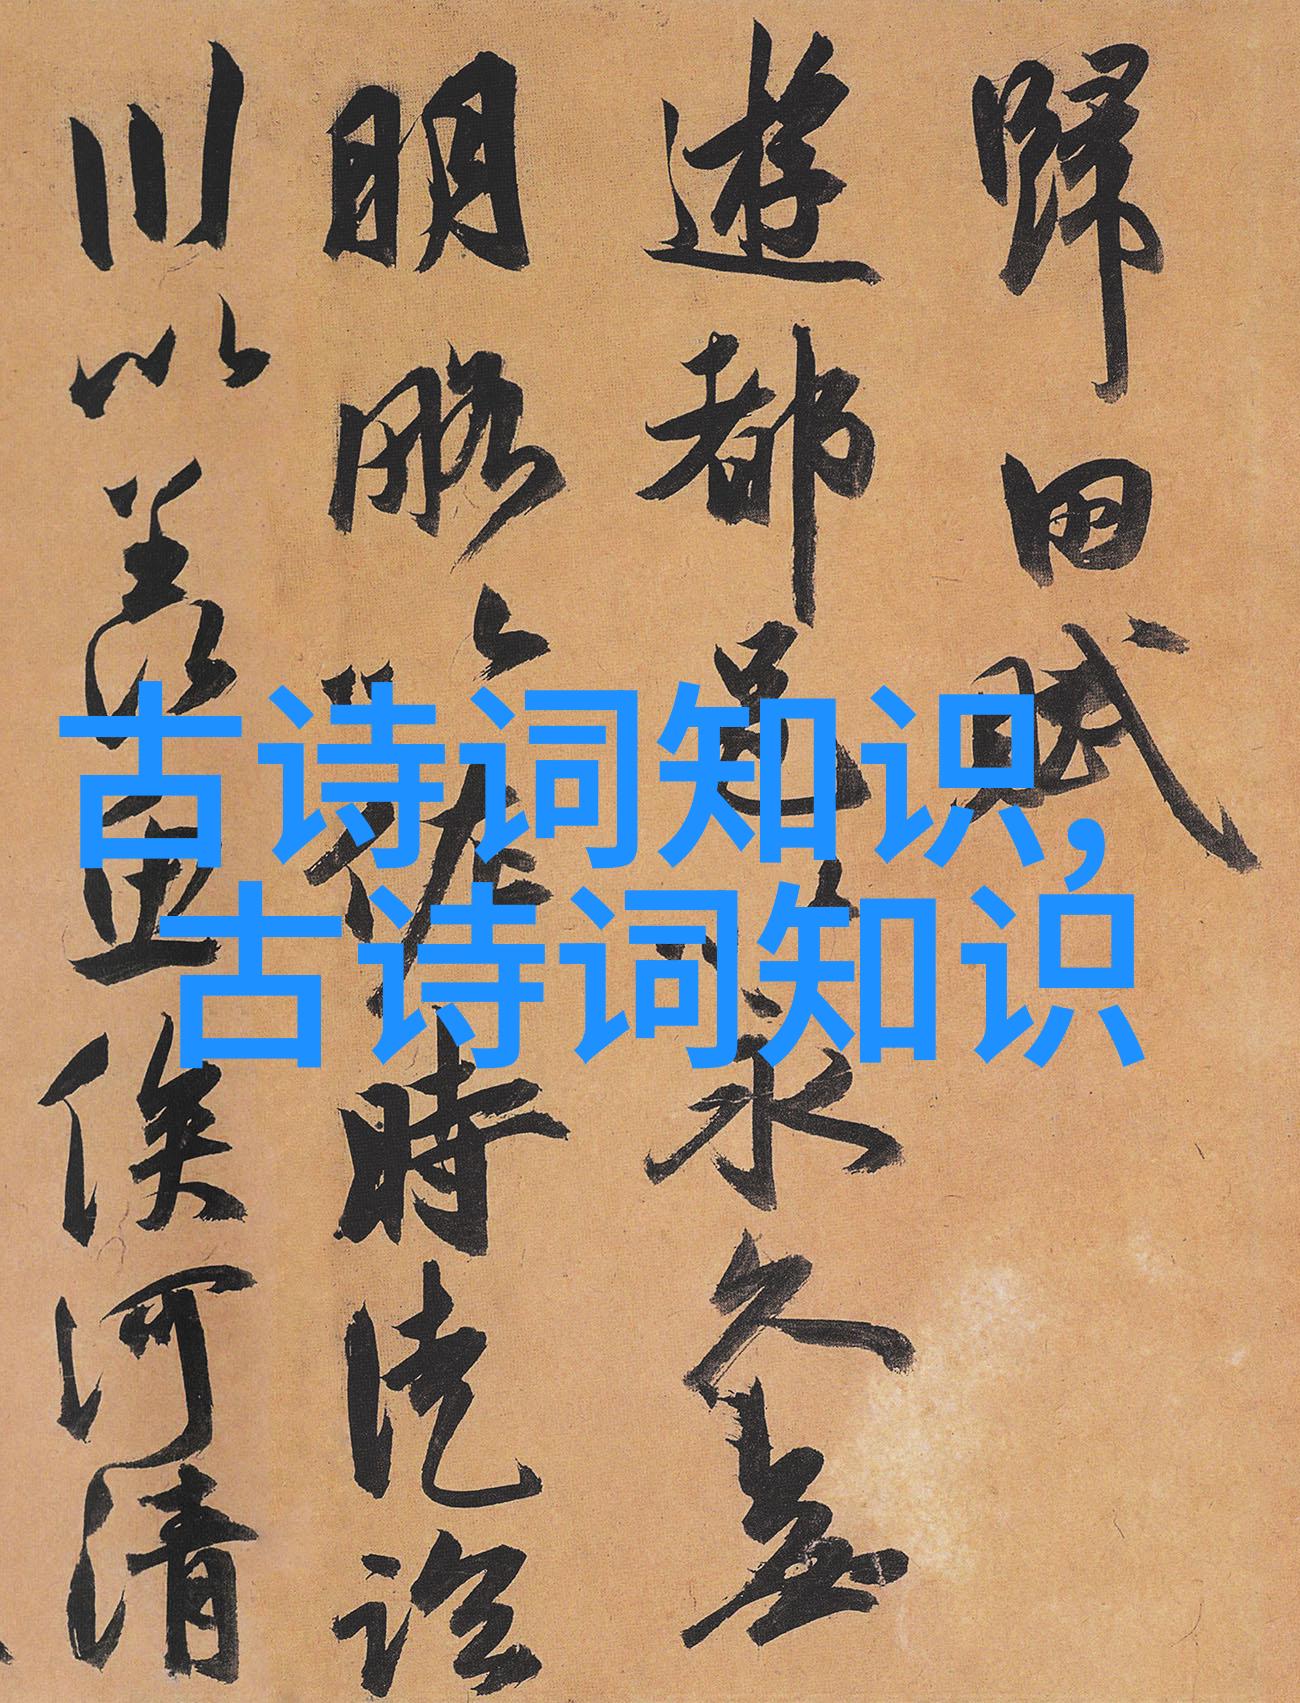 歸田賦
遊都邑以永久無
明略以佐時徒臨
川以羨魚俟河清
古诗词知识,
古诗词知识